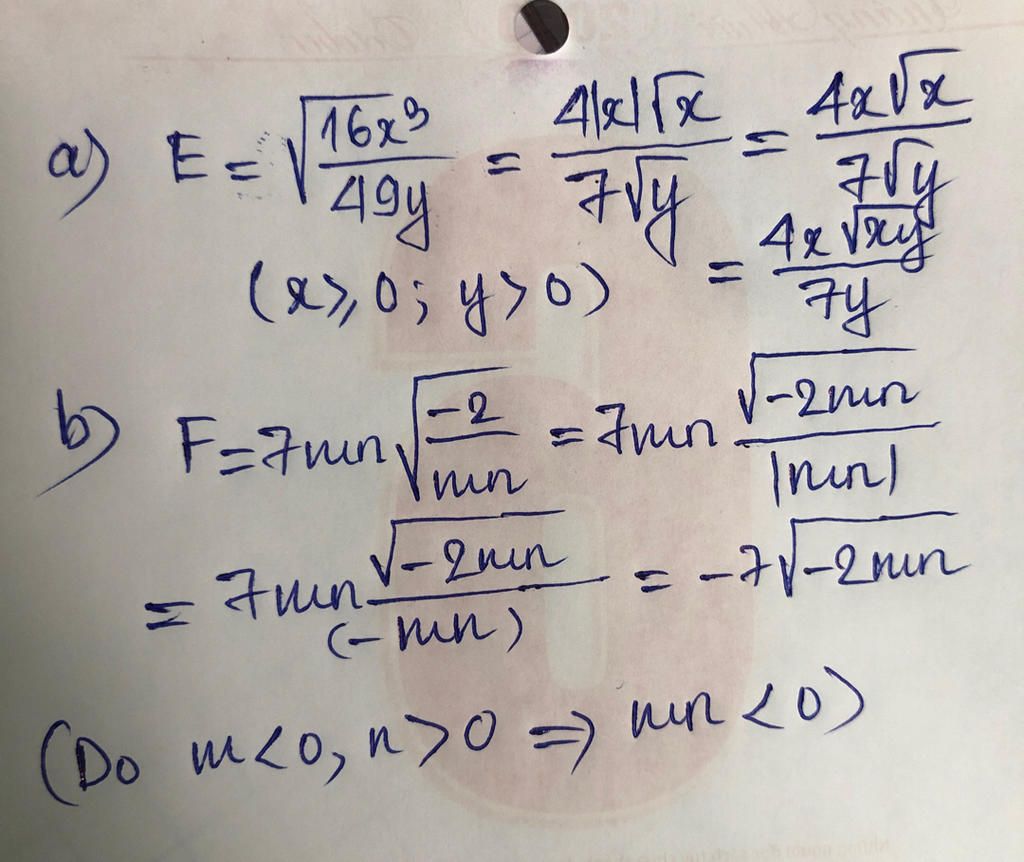 a) E = √(16x³/49y) = 4|x|√x/7√y = 4x√x/7√y
(x ⩾ 0; y > 0) = 4x√xy/7y
b) F = 7mn√(-2/mn) = 7mn √-2mn/|mn|
= 7mn √-2mn/(-mn) = -7√-2mn
(Do m < 0, n > 0 ⇒ mn < 0)